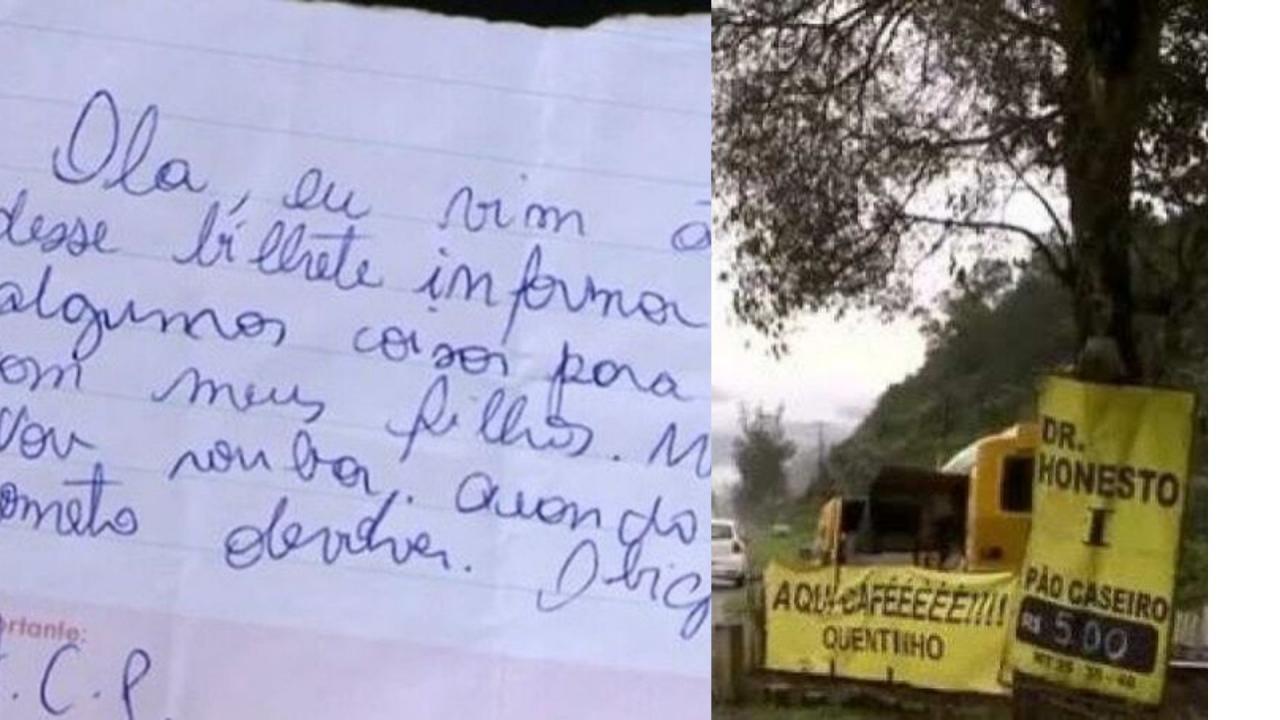 Ola, eu vim a
desse bilhete informar
algumas coisas para
om meus filhos. M
Vou roubar. Quando
ometo devolver. Obrig
ortante:
.C.P.
DR.
HONESTO
I
PÃO CASEIRO
R$ 5,00
AQUI CAFÉÉÉÉÉ!!!!
QUENTINHO